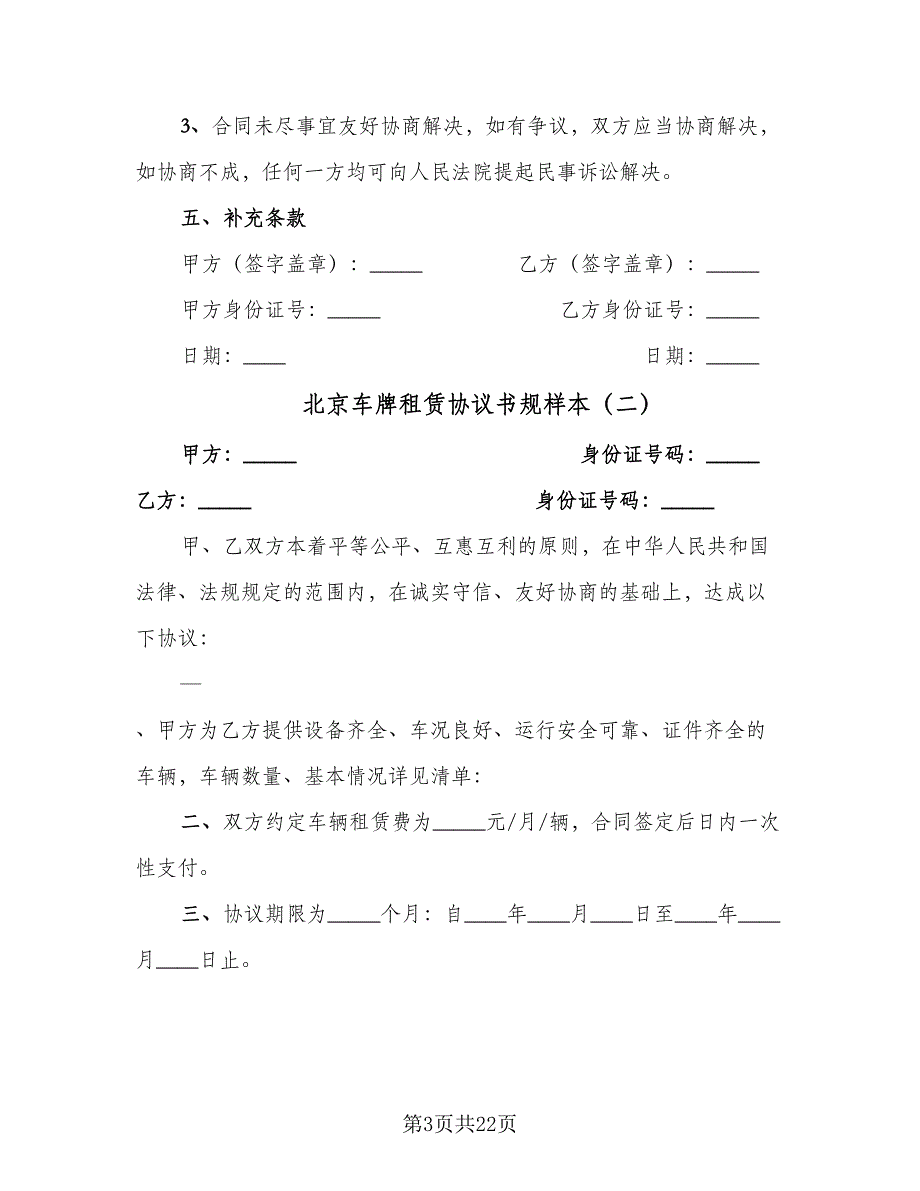 3、合同未尽事宜友好协商解决，如有争议，双方应当协商解决，
如协商不成，任何一方均可向人民法院提起民事诉讼解决。
五、补充条款
甲方（签字盖章）：_____ 乙方（签字盖章）：_____
甲方身份证号：_____ 乙方身份证号：_____
日期：____ 日期：_____
北京车牌租赁协议书规样本（二）
甲方：_____ 身份证号码：_____
乙方：_____ 身份证号码：_____
甲、乙双方本着平等公平、互惠互利的原则，在中华人民共和国
法律、法规规定的范围内，在诚实守信、友好协商的基础上，达成以
下协议：
一
、甲方为乙方提供设备齐全、车况良好、运行安全可靠、证件齐全的
车辆，车辆数量、基本情况详见清单：
二、双方约定车辆租赁费为_____元/月/辆，合同签定后日内一次
性支付。
三、协议期限为_____个月：自____年____月____日至____年____
月____日止。
第3页共22页